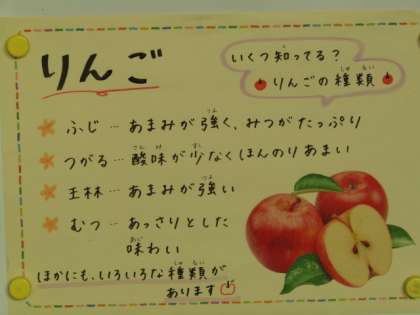 りんご
いくつ知ってる?
りんごの種類
ふじ…あまみが強く、みつがたっぷり
つがる…酸味が少なくほんのりあまい
王林…あまみが強い
むつ…あっさりとした
味わい
ほかにも、いろいろな種類が
あります